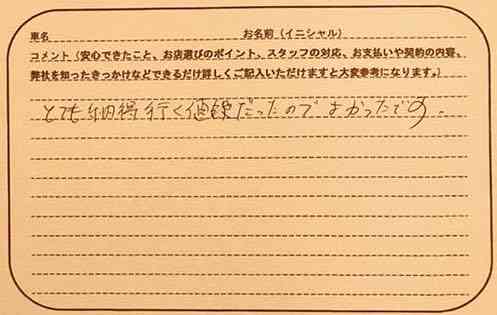 車名 お名前（イニシャル）
コメント（安心できたこと、お店選びのポイント、スタッフの対応、お支払いや契約の内容、
弊社を知ったきっかけなどできるだけ詳しくご記入いただけますと大変参考になります。）
とても納得行く値段だったのでよかったです。